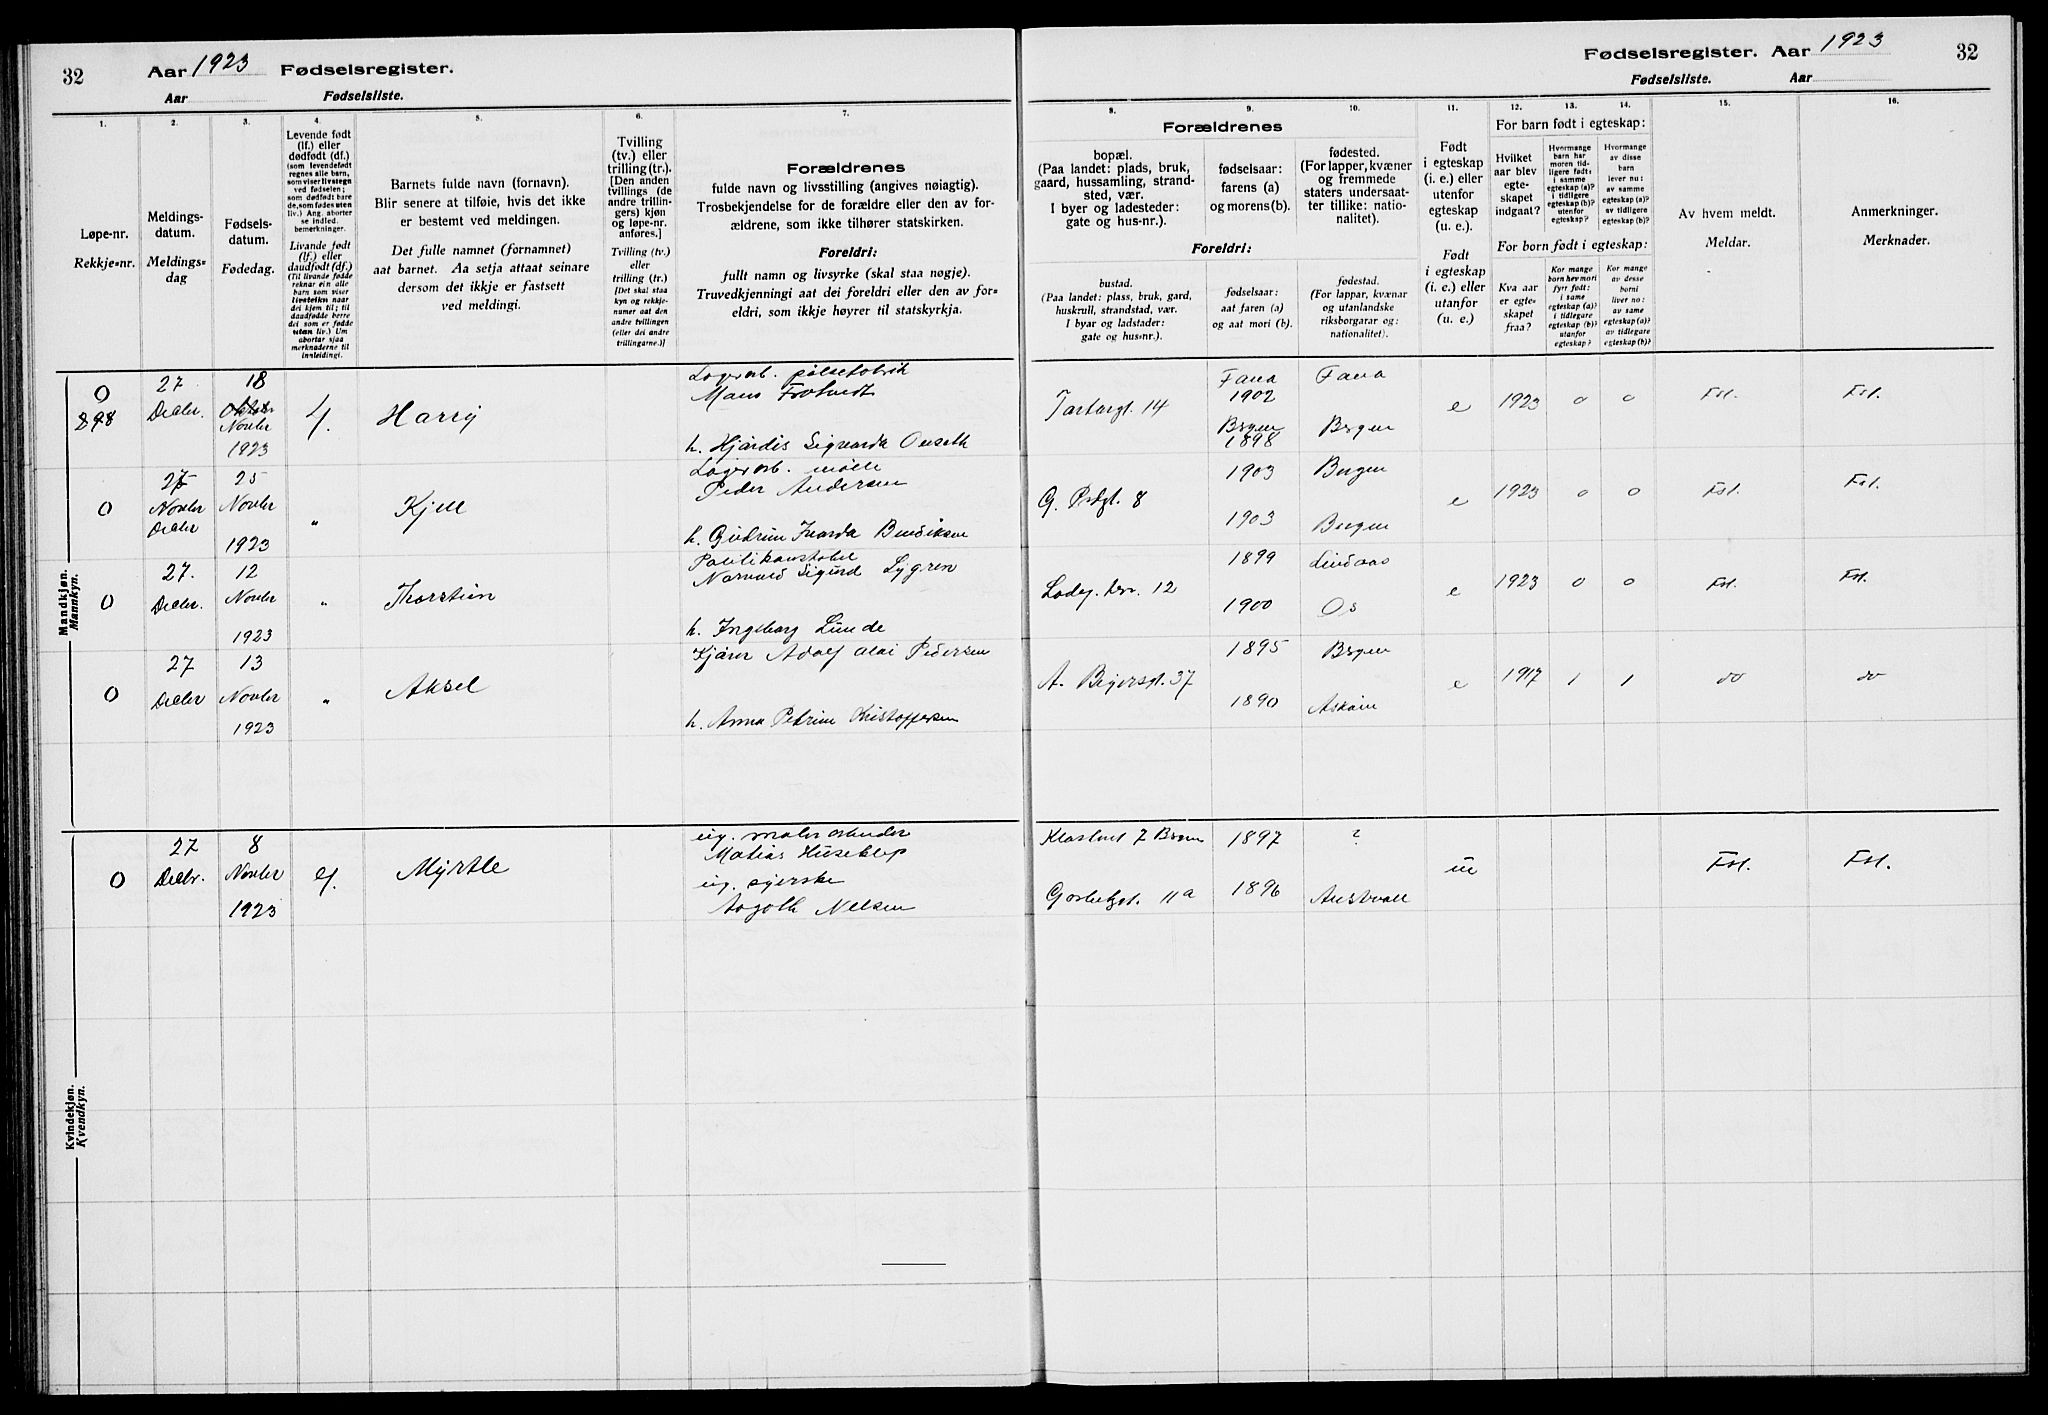 32
Aar 1923 Fødselsregister.
Aar Fødselsliste.
1.
Løpe-nr.
Rekkje=nr.
2.
Meldings-
datum.
Meldings=
dag
3.
Fødsels-
datum.
Fødedag.
4.
Levende født
(lf.) eller
dødfødt (df.)
(som levendefødt
regnes alle barn,
som viser livstegn
ved fødselen;
som dødfødt bare
de, som fødes uten
liv.) Ang. aborter
se indled.
bemerkninger.
Livande født
(lf.) eller
daudfødt (df.)
(Til livande fødde
reknar ein alle
barn som viser
livsteikn naar
dei kjem til; til
daudfødde berre
dei som er fødde
utan liv.) Um
abortar sjaa
merknaderne til
innleidingi.
5.
Barnets fulde navn (fornavn).
Blir senere at tilføie, hvis det ikke
er bestemt ved meldingen.
Det fulle namnet (fornamnet)
aat barnet. Aa setja attaat seinare
dersom det ikkje er fastsett
ved meldingi.
6.
Tvilling
(tv.) eller
trilling (tr.).
[Den anden
tvillings (de
andre trillin-
gers) kjøn
og løpe-nr.
anføres.]
Tvilling (tv.)
eller
trilling (tr.)
[Det skal staa
kyn og rekkje-
numer aat den
andre tvillingen
(eller dei andre
trillingarne.)]
7.
Forældrenes
fulde navn og livsstilling (angives nøiagtig).
Trosbekjendelse for de forældre eller den av for-
ældrene, som ikke tilhører statskirken.
Foreldri:
fullt namn og livsyrke (skal staa nøgje).
Truvedkjenningi aat dei foreldri eller den av for=
eldri, som ikkje høyrer til statskyrkja.
Mandkjøn.
Mannkyn.
0
898
27
Decbr.
18
Novbr
1923
lf.
Harry
Lagerarb. pølsefabrik
Mans
h. Hjørdis Sigvarda
0
27
Novbr
Decbr
25
Novbr
1923
"
Kjell
Lagerarb. mølle
Peder Andersen
h. Gudrun Ivarda Bendiksen
0
27.
Decbr.
12
Novbr
1923
"
Thorstein
Politikonstabel
Norvald Sigurd Lygren
h. Ingeborg Lunde
0
27
Decbr
13
Novbr
1923
"
Aksel
Kjører Adolf Olai Pedersen
h. Anna Petrine Kristoffersen
Kvindekjøn.
Kvendkyn.
0
27
Decbr.
8
Novbr
1923
lf.
Myrtle
ug. maler arbeider
Matias Huseklep
ug. syerske
Aagoth Nelsen
Fødselsregister. Aar 1923
32
Fødselsliste. Aar
8.
Forældrenes
bopæl.
(Paa landet: plads, bruk,
gaard, hussamling, strand-
sted, vær.
I byer og ladesteder:
gate og hus-nr.).
Foreldri:
bustad.
(Paa landet: plass, bruk, gard,
huskrull, strandstad, vær.
I byar og ladstader:
gate og hus=nr.).
9.
fødselsaar:
farens (a)
og morens (b).
fødselsaar:
aat faren (a)
og aat mori (b).
10.
fødested.
(For lapper, kvæner
og fremmede
staters undersaat-
ter tillike: natio-
nalitet).
fødestad.
(For lappar, kvænar
og utanlandske
riksborgarar og:
nationalitet).
11.
Født
i egteskap
(i. e.) eller
utenfor
egteskap
(u. e.).
Født
i egteskap
(i. e.) eller
utanfor
(u. e.)
For barn født i egteskap:
12.
Hvilket
aar blev
egte-
skapet
indgaat?
13.
Hvormange
barn har
moren tid-
ligere født:
i samme
egteskap (a)?
i tidligere
egteskap (b)?
utenfor
egteskap?
14.
Hvormange
av disse
barn
lever nu:
av samme
egteskap (a)?
av tidligere
egteskap (b)?
For born født i egteskap:
Kva aar
er egte-
skapet
fraa?
Kor mange
born hev mori
fyrr født:
i same
egteskap (a)?
i tidlegare
egteskap (b)?
utanfor
egteskap?
Kor mange
av desse
borni
liver no:
av same
egteskap (a)?
av tidlegare
egteskap (b)?
15.
Av hvem meldt.
Meldar.
16.
Anmerkninger.
Merknader.
Fana
1902
Bergen
1898
Fana
Bergen
e
1923
0
0
Fst.
Fst.
8
1903
1903
Bergen
Bergen
e
1923
0
0
Fst.
Fst.
12
1899
1900
Lindaas
Os
e
1923
0
0
Fst.
Fst.
A. Beyersgt. 37
1895
1890
Bergen
Askøen
e
1917
1
1
do
do
1897
1896
?
ue
Fst.
Fst.
11a